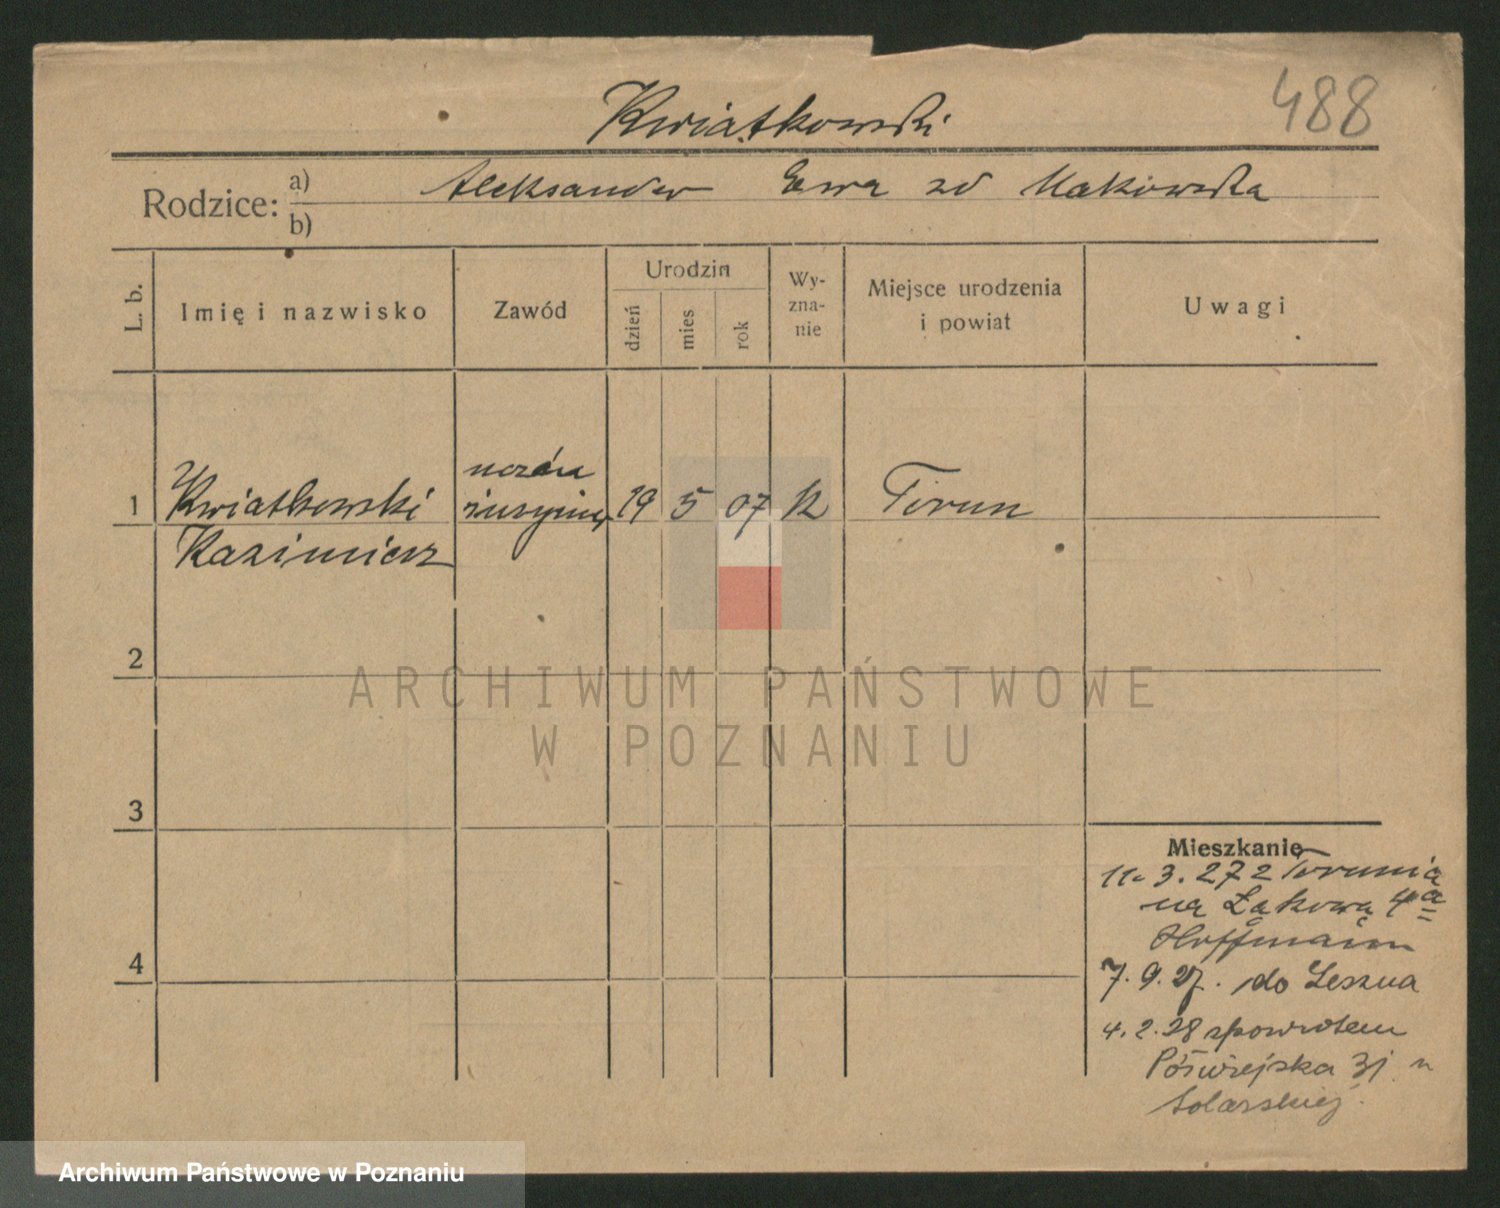 488
Kwiatkowski
Rodzice: a) b) Aleksander Ewa zd Makowska
L. b. Imię i nazwisko Zawód Urodzin dzień mies rok Wyzna-nie Miejsce urodzenia i powiat Uwagi
1 Kwiatkowski 19 5 07 k Toruń
Kazimierz
2
ARCHIWUM PAŃSTWOWE
W POZNANIU
3
Mieszkanie
11. 3. 27 z Torunia
na Łąkową 4a
Hoffmann
4
7. 9. 27. do Leszna
4. 2. 28 spowrotem
Półwiejska 31 u
Solarskiej.
Archiwum Państwowe w Poznaniu